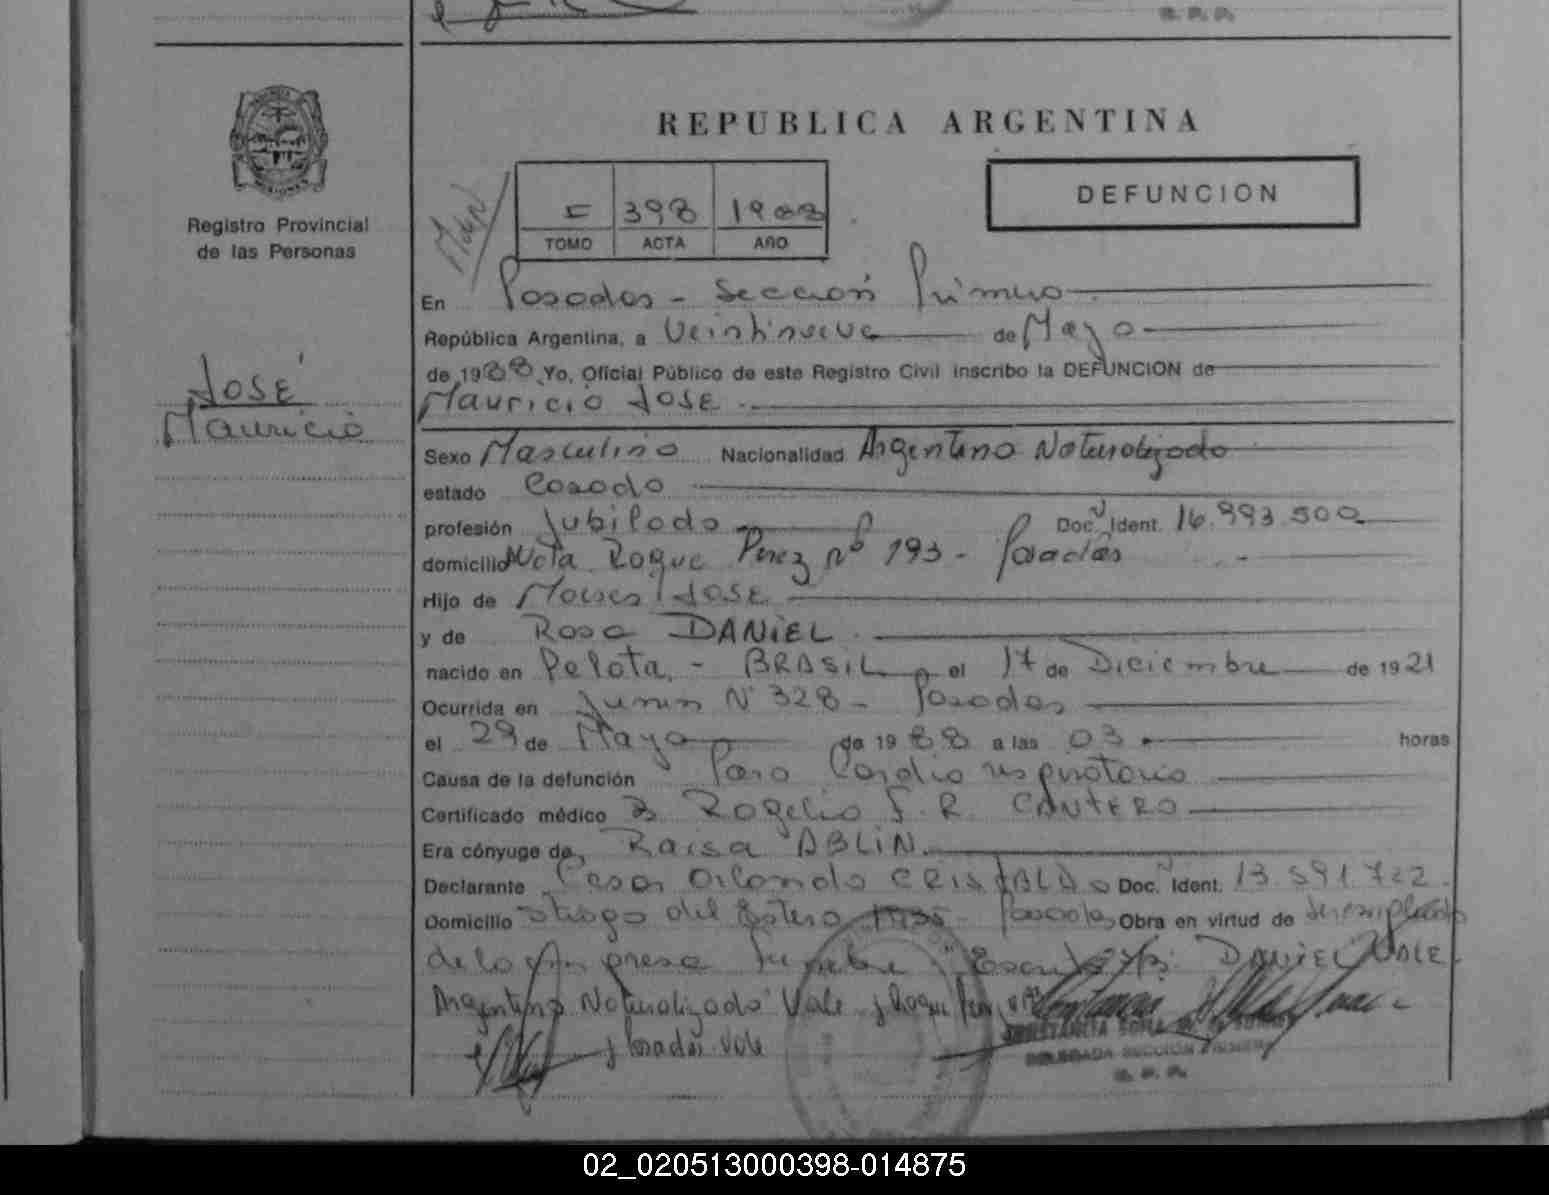 R. P. P.
REPUBLICA ARGENTINA
Registro Provincial
de las Personas
DEFUNCION
398 1988
TOMO ACTA AÑO
En Posadas - Sección Primera
República Argentina, a Veintinueve de Mayo
de 1988 Yo, Oficial Público de este Registro Civil inscribo la DEFUNCION de
José
Mauricio
Mauricio JOSE
Sexo Masculino Nacionalidad Argentino Naturalizado
estado Casado
profesión Jubilado Doc. Ident. 16.993.500
domicilio Roque Perez nº 193 - Posadas
Hijo de Moises JOSE
y de Rosa DANIEL
nacido en Pelota - BRASIL el 17 de Diciembre de 1921
Ocurrida en Junin Nº 328 - Posadas
el 29 de Mayo de 1988 a las 03 horas
Causa de la defunción Paro Cardio respiratorio
Certificado médico Rogelio R. CANTERO
Era cónyuge de Raisa ABLIN
Declarante Cesar Orlando CRISTALDO Doc. Ident. 13.591.722
Domicilio Stiago del Estero Posadas Obra en virtud de
de la Empresa Funebre DANIEL VALE
Argentino Naturalizado Vale
Posadas Vale
DELEGADA SECCION PRIMERA
R. P. P.
02_020513000398-014875